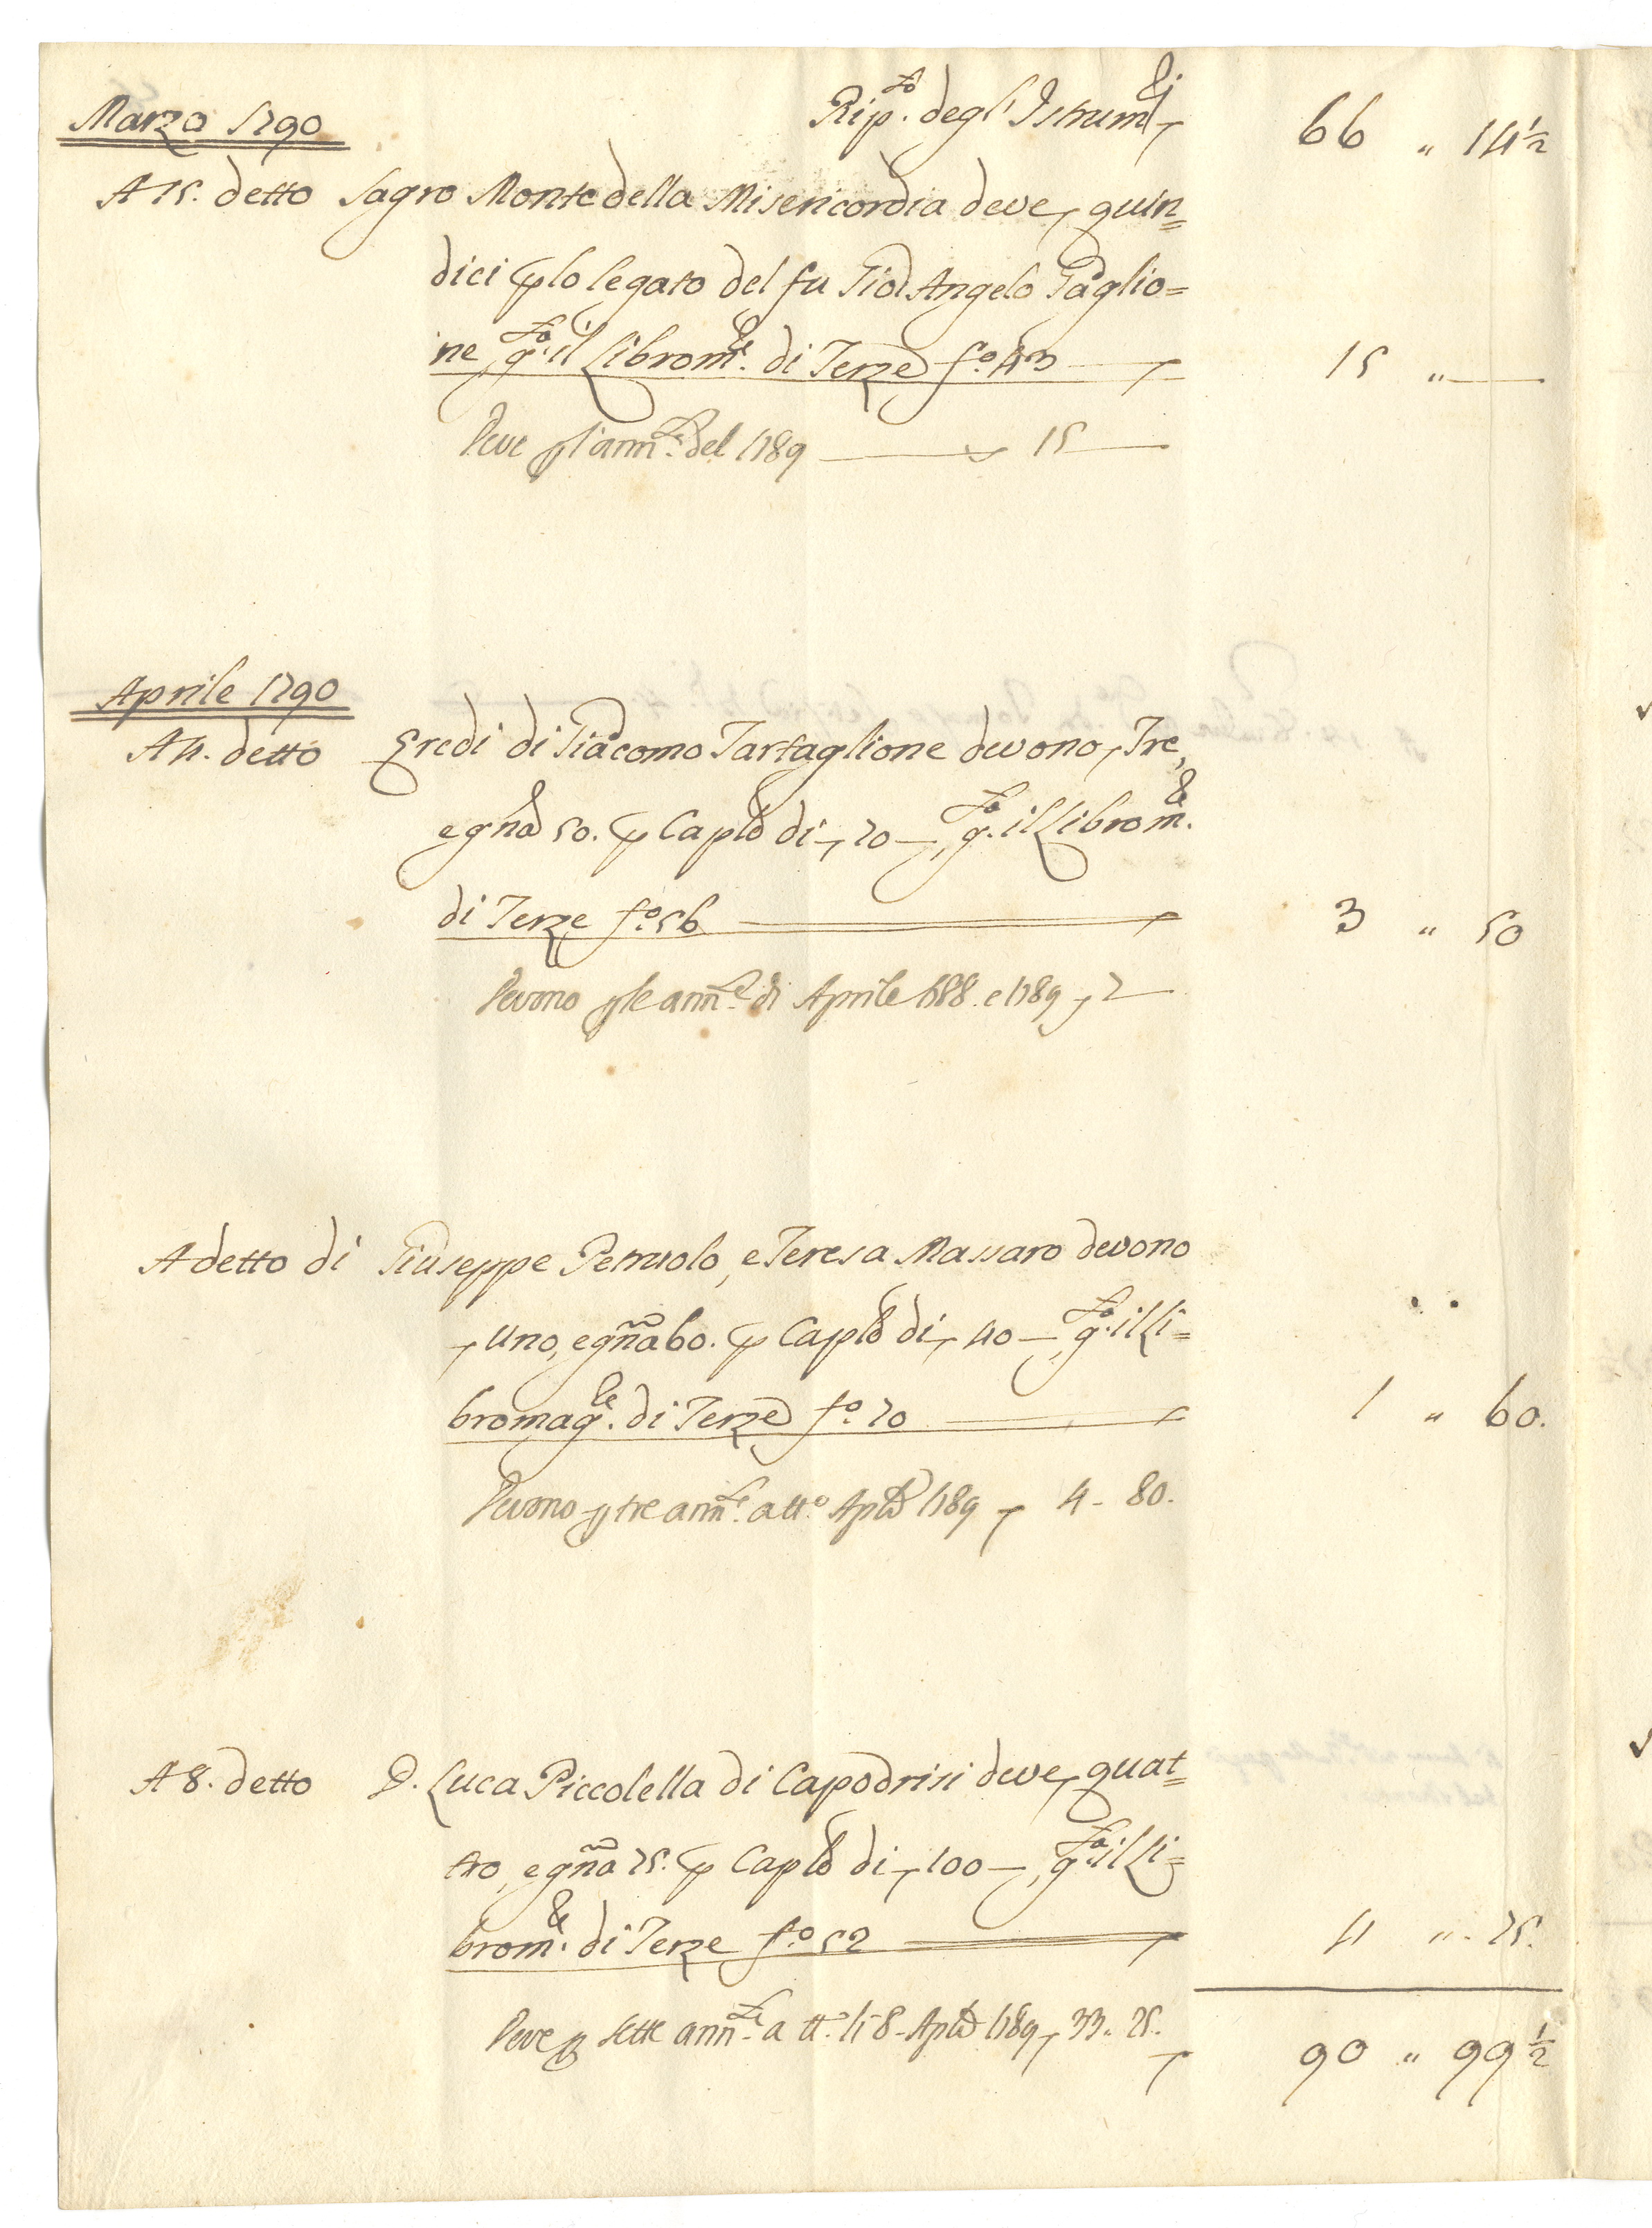 Rip.to degl' Istrum.ti 66 " 14½
Marzo 1790
A 15. detto Sagro Monte della Misericordia deve quin=
dici p lo legato del fu Gio: Angelo Taglio=
ne, g.ta il Librom.re di Terze f.o 43 — 15 " —
Deve p l'ann.tà del 1789 — 15 —
Aprile 1790
A 4. detto Eredi di Giacomo Tartaglione devono Tre,
e gña 50. p Caplē di 70 —, g.ta il Librom.re
di Terze f.o 56 — 3 " 50
Devono p le ann.tà di Aprile 1788. e 1789 7 —
A detto dì Giuseppe Petruolo, e Teresa Massaro devono
Uno, e gña 60. p Caplē di 40 —, g.ta il Li=
bromag.re di Terze f.o 70 — 1 " 60.
Devono p tre ann.tà a tt.o Aplē 1789 4 - 80.
A 8. detto D. Luca Piccolella di Capodrisi deve quat=
tro, e gña 75. p Caplē di 100 —, g.ta il Li=
brom.re di Terze f.o 52 — 4 " 75.
Deve p sette ann.tà a tt.o li 8 Aplē 1789 33. 25.
90 " 99½